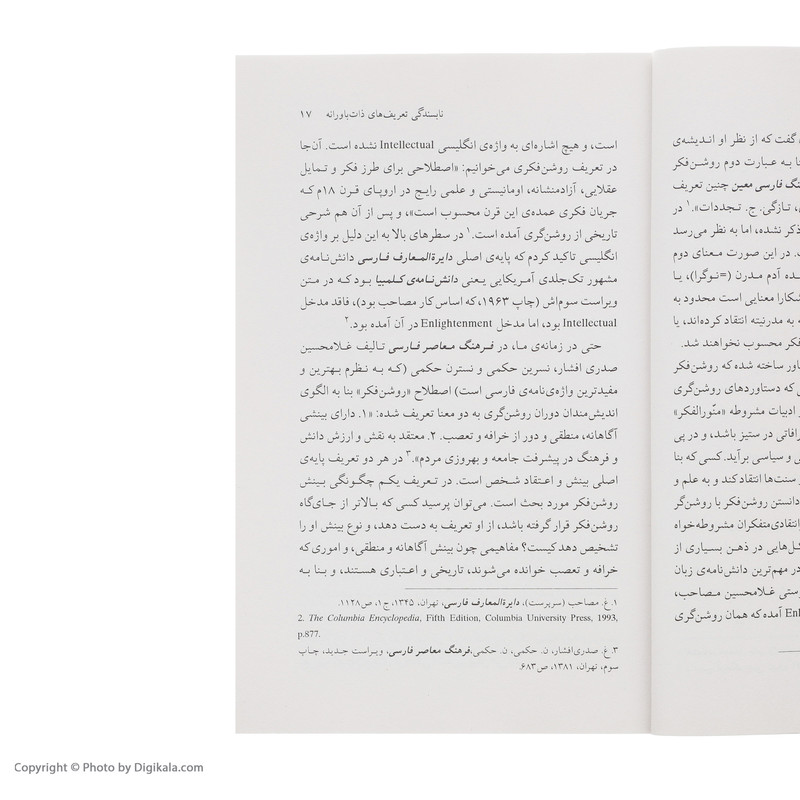 گفت که از نظر او اندیشه‌ی
به عبارت دوم روشن‌فکر
فارسی معین چنین تعریف
تازگی. ج. تجددات».۱ در
ذکر نشده، اما به نظر می‌رسد
در این صورت معنای دوم
آدم مدرن (=نوگرا)، یا
معنایی است محدود به
به مدرنیته انتقاد کرده‌اند، یا
محسوب نخواهند شد.
ساخته شده که روشن‌فکر
که دستاوردهای روشن‌گری
ادبیات مشروطه «منّورالفکر»
در ستیز باشد، و در پی
و سیاسی برآید. کسی که بنا
سنت‌ها انتقاد کند و به علم و
دانستن روشن‌فکر با روشن‌گر
متفکران مشروطه‌خواه
در ذهن بسیاری از
در مهم‌ترین دانش‌نامه‌ی زبان
غلامحسین مصاحب،
آمده که همان روشن‌گری
نابسندگی تعریف‌های ذات‌باورانه ۱۷
است، و هیچ اشاره‌ای به واژه‌ی انگلیسی Intellectual نشده است. آن‌جا
در تعریف روشن‌فکری می‌خوانیم: «اصطلاحی برای طرز فکر و تمایل
عقلایی، آزادمنشانه، اومانیستی و علمی رایج در اروپای قرن ۱۸م که
جریان فکری عمده‌ی این قرن محسوب است»، و پس از آن هم شرحی
تاریخی از روشن‌گری آمده است.۱ در سطرهای بالا به این دلیل بر واژه‌ی
انگلیسی تاکید کردم که پایه‌ی اصلی دایرةالمعارف فارسی دانش‌نامه‌ی
مشهور تک‌جلدی آمریکایی یعنی دانش‌نامه‌ی کلمبیا بود که در متن
ویراست سوم‌اش (چاپ ۱۹۶۳، که اساس کار مصاحب بود)، فاقد مدخل
Intellectual بود، اما مدخل Enlightenment در آن آمده بود.۲
حتی در زمانه‌ی ما، در فرهنگ معاصر فارسی تالیف غلامحسین
صدری افشار، نسرین حکمی و نسترن حکمی (که به نظرم بهترین و
مفیدترین واژه‌ی‌نامه‌ی فارسی است) اصطلاح «روشن‌فکر» بنا به الگوی
اندیش‌مندان دوران روشن‌گری به دو معنا تعریف شده: «۱. دارای بینشی
آگاهانه، منطقی و دور از خرافه و تعصب. ۲. معتقد به نقش و ارزش دانش
و فرهنگ در پیشرفت جامعه و بهروزی مردم».۳ در هر دو تعریف پایه‌ی
اصلی بینش و اعتقاد شخص است. در تعریف یکم چگونگی بینش
روشن‌فکر مورد بحث است. می‌توان پرسید کسی که بالاتر از جای‌گاه
روشن‌فکر قرار گرفته باشد، از او تعریف به دست دهد، و نوع بینش او را
تشخیص دهد کیست؟ مفاهیمی چون بینش آگاهانه و منطقی، و اموری که
خرافه و تعصب خوانده می‌شوند، تاریخی و اعتباری هستند، و بنا به
۱. غ. مصاحب (سرپرست)، دایرةالمعارف فارسی، تهران، ۱۳۴۵، ج۱، ص۱۱۲۸.
2. The Columbia Encyclopedia, Fifth Edition, Columbia University Press, 1993,
p.877.
۳. غ. صدری‌افشار، ن. حکمی، ن. حکمی،فرهنگ معاصر فارسی، ویراست جدید، چاپ
سوم، تهران، ۱۳۸۱، ص۶۸۳.
Copyright © Photo by Digikala.com